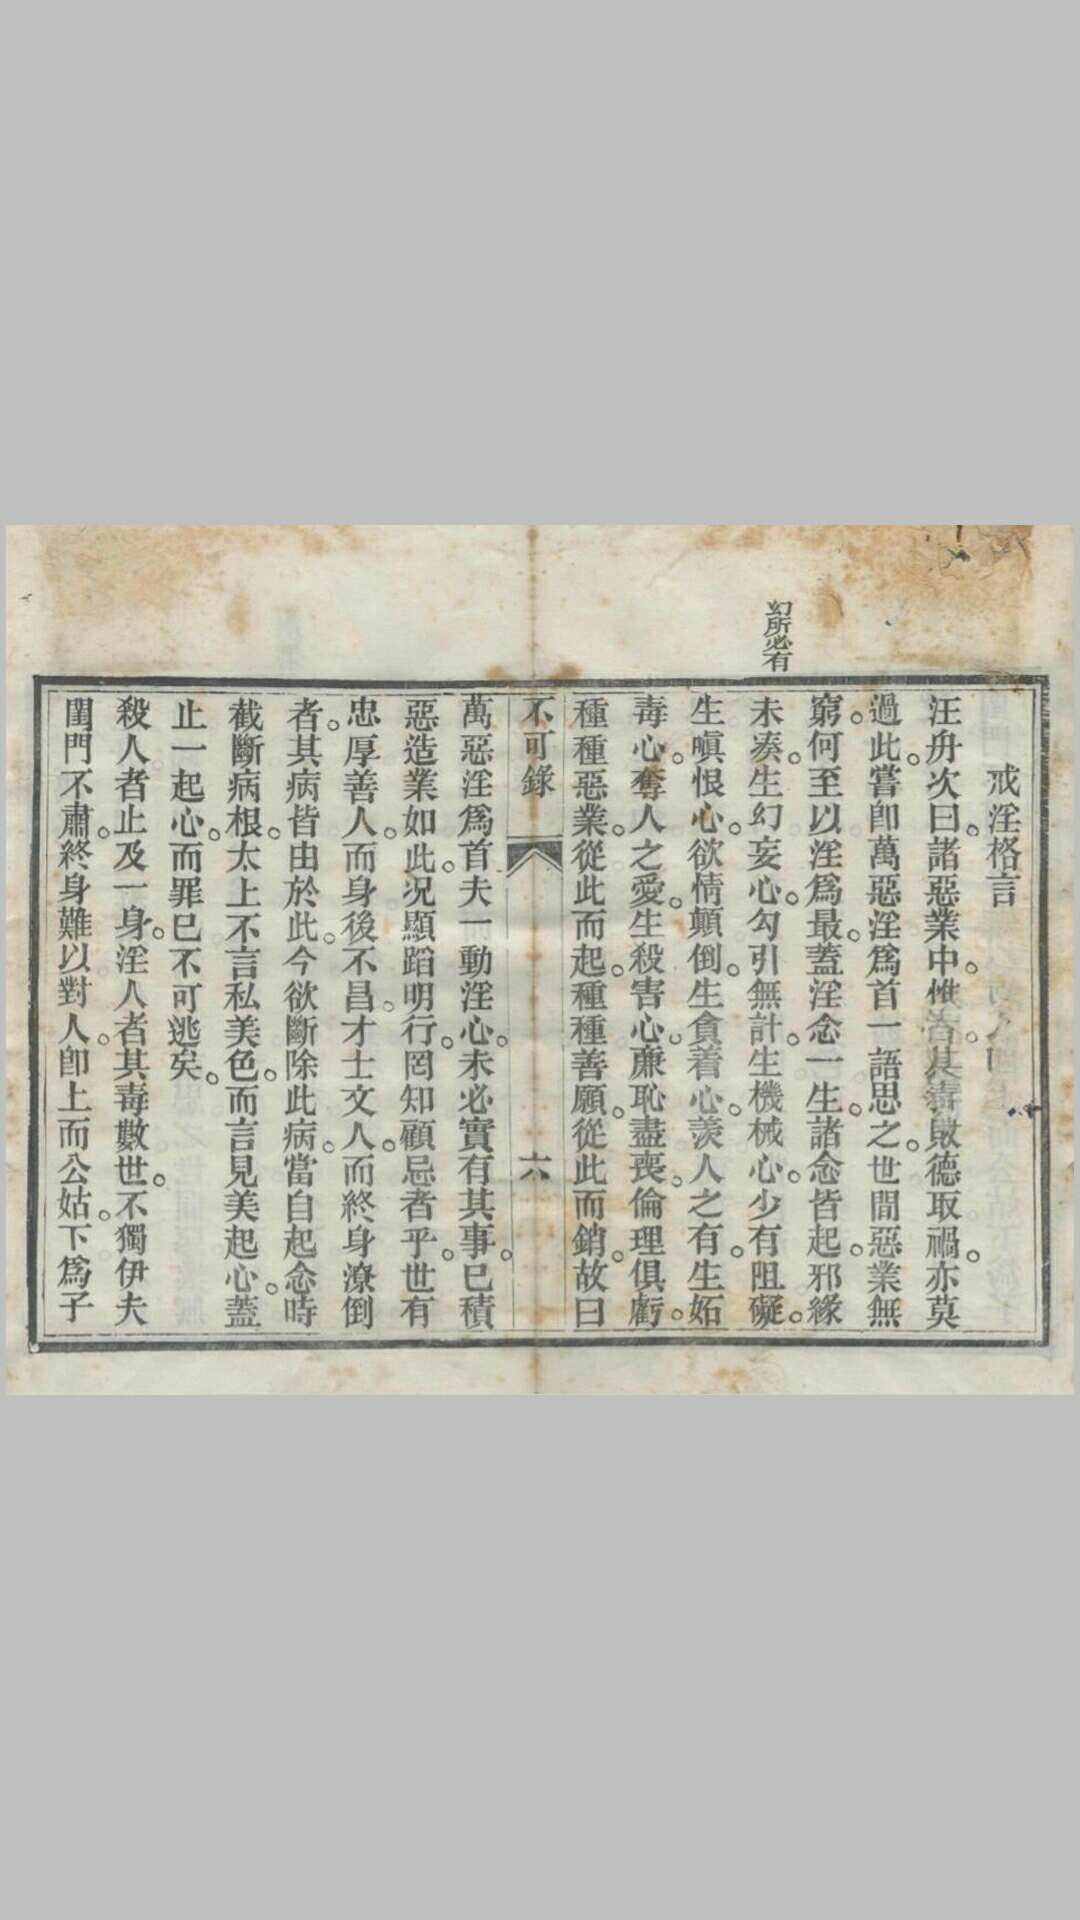 幻所必有
戒淫格言
汪舟次曰。諸惡業中。惟淫其毒。敗德取禍。亦莫
過此。嘗卽萬惡淫爲首一語思之。世間惡業無
窮。何至以淫爲最。蓋淫念一生。諸念皆起。邪緣
未湊。生幻妄心。勾引無計。生機械心。少有阻礙。
生嗔恨心。欲情顛倒。生貪着心。羨人之有。生妬
毒心。奪人之愛。生殺害心。廉恥盡喪。倫理俱虧。
種種惡業。從此而起。種種善願。從此而銷。故曰
不可錄 六
萬惡淫爲首。夫一動淫心。未必實有其事。已積
惡造業如此。况顯蹈明行。罔知顧忌者乎。世有
忠厚善人。而身後不昌。才士文人。而終身潦倒
者。其病皆由於此。今欲斷除此病。當自起念時
截斷病根。太上不言私美色。而言見美起心。蓋
止一起心。而罪已不可逃矣。
殺人者止及一身。淫人者其毒數世。不獨伊夫
閨門不肅。終身難以對人。卽上而公姑。下爲子